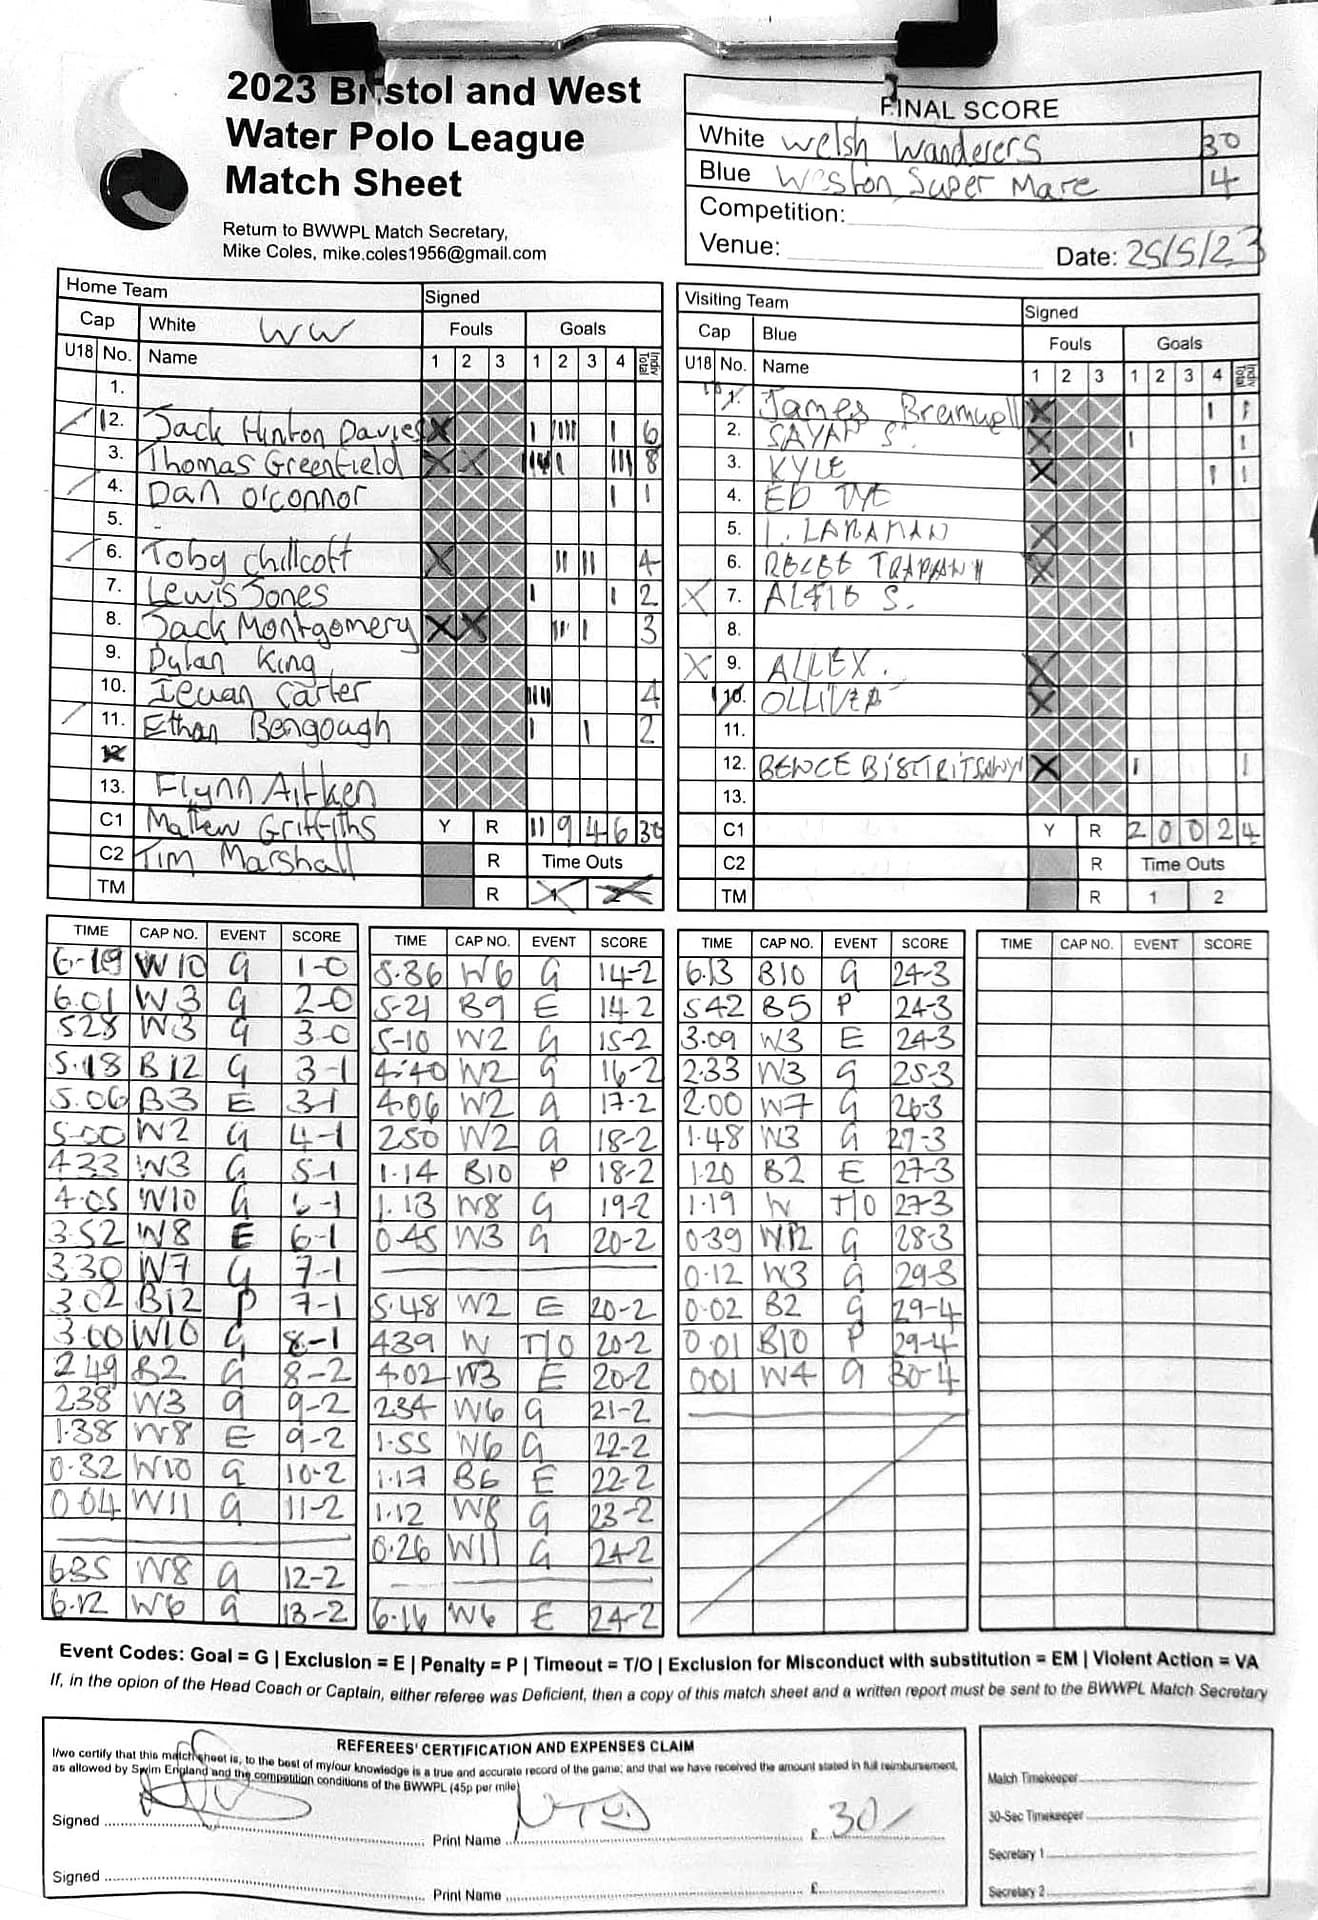 2023 Bristol and West
Water Polo League
Match Sheet
Return to BWWPL Match Secretary,
Mike Coles, mike.coles1956@gmail.com
FINAL SCORE
White Welsh Wanderers 30
Blue Weston Super Mare 4
Competition:
Venue: Date: 25/5/23
Home Team Signed
Cap White WW Fouls Goals
U18 No. Name 1 2 3 1 2 3 4 Indiv Total
1.
12. Jack Hinton Davies X I IIII I 6
3. Thomas Greenfield X X IIII I III 8
4. Dan O'Connor I 1
5.
6. Toby Chillcott X II II 4
7. Lewis Jones I I 2
8. Jack Montgomery X X II I 3
9. Dylan King
10. Ieuan Carter IIII 4
11. Ethan Bengough I I 2
12
13. Flynn Aitken
C1 Mattew Griffiths Y R 11 9 4 6 30
C2 Tim Marshall R Time Outs
TM R 1 2
Visiting Team Signed
Cap Blue Fouls Goals
U18 No. Name 1 2 3 1 2 3 4 Indiv Total
1. James Bramwell X I 1
2. SAYAN S. X I 1
3. KYLE X I 1
4. ED TYE
5. L. LARAMAN X
6. X
7. ALFIE S.
8.
9. ALLEX. X
10. OLLIVER X
11.
12. BENCE X I 1
13.
C1 Y R 2 0 0 2 4
C2 R Time Outs
TM R 1 2
TIME CAP NO. EVENT SCORE
6-19 W10 G 1-0
6.01 W3 G 2-0
528 W3 G 3-0
5.18 B12 G 3-1
5.06 B3 E 3-1
5-00 W2 G 4-1
433 W3 G 5-1
4.05 W10 G 6-1
3.52 W8 E 6-1
3.30 W7 G 7-1
3.02 B12 P 7-1
3.00 W10 G 8-1
2 49 B2 G 8-2
238 W3 G 9-2
1.38 W8 E 9-2
0-32 W10 G 10-2
0 04 W11 G 11-2
635 W8 G 12-2
6.12 W6 G 13-2
TIME CAP NO. EVENT SCORE
5.36 W6 G 14-2
5-21 B9 E 14-2
5-10 W2 G 15-2
4:40 W2 G 16-2
4.06 W2 G 17-2
250 W2 G 18-2
1.14 B10 P 18-2
1.13 W8 G 19-2
0.45 W3 G 20-2
5.48 W2 E 20-2
439 W T/O 20-2
4.02 W3 E 20-2
234 W6 G 21-2
1.55 W6 G 22-2
1.17 B6 E 22-2
1.12 W8 G 23-2
0.26 W11 G 24-2
6.16 W6 E 24-2
TIME CAP NO. EVENT SCORE
6.13 B10 G 24-3
542 B5 P 24-3
3.09 W3 E 24-3
2.33 W3 G 25-3
2.00 W7 G 26-3
1.48 W3 G 27-3
1.20 B2 E 27-3
1.19 W T/O 27-3
0.39 W12 G 28-3
0.12 W3 G 29-3
0.02 B2 G 29-4
0.01 B10 P 29-4
001 W4 G 30-4
TIME CAP NO. EVENT SCORE
Event Codes: Goal = G | Exclusion = E | Penalty = P | Timeout = T/O | Exclusion for Misconduct with substitution = EM | Violent Action = VA
If, in the opion of the Head Coach or Captain, either referee was Deficient, then a copy of this match sheet and a written report must be sent to the BWWPL Match Secretary
REFEREES' CERTIFICATION AND EXPENSES CLAIM
I/we certify that this match sheet is, to the best of my/our knowledge is a true and accurate record of the game; and that we have received the amount stated in full reimbursement,
as allowed by Swim England and the competition conditions of the BWWPL (45p per mile)
Signed Print Name £ 30/
Signed Print Name £
Match Timekeeper
30-Sec Timekeeper
Secretary 1
Secretary 2